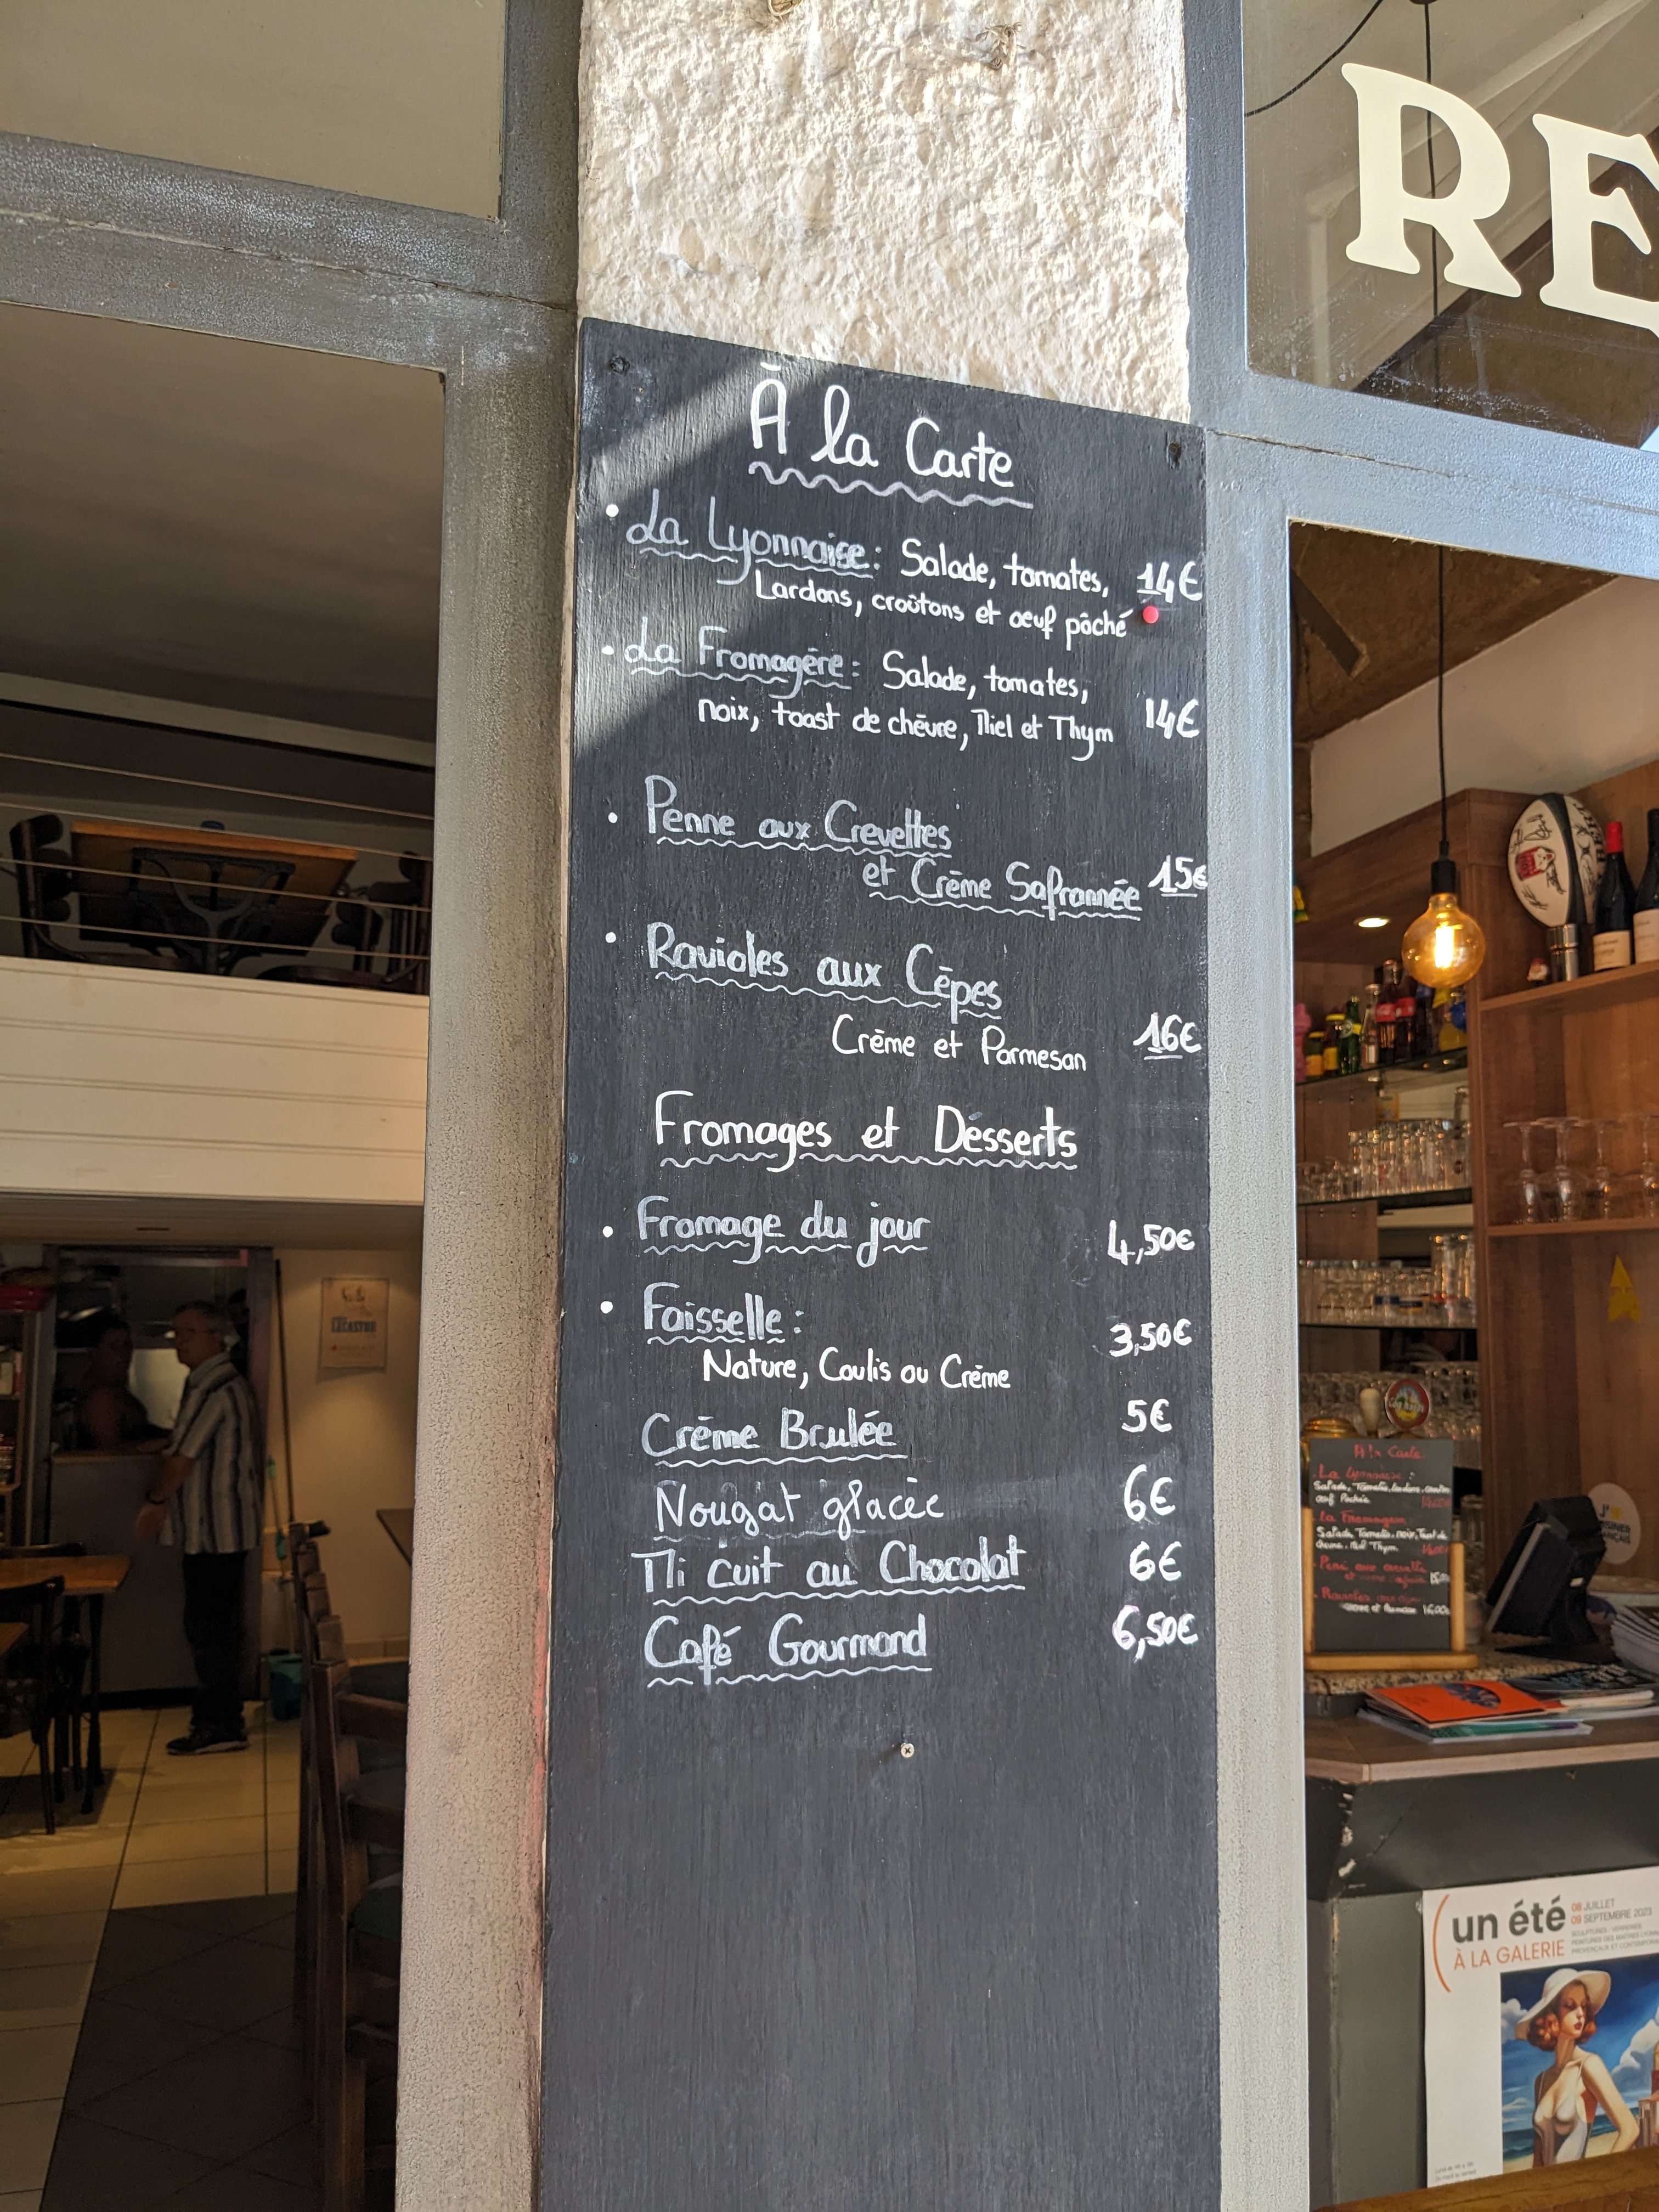 RE
À la Carte
• La Lyonnaise: Salade, tomates, 14€
Lardons, croûtons et oeuf pôché
• La Fromagère: Salade, tomates,
noix, toast de chèvre, Miel et Thym 14€
• Penne aux Crevettes
et Crème Safrannée 15€
• Ravioles aux Cèpes
Crème et Parmesan 16€
Fromages et Désserts
• Fromage du jour 4,50€
• Faisselle: 3,50€
Nature, Coulis ou Crème
Crème Brulée 5€
Nougat glacée 6€
Mi cuit au Chocolat 6€
Café Gourmand 6,50€
A la Carte
La Lyonnaise:
Salade, Tomates, lardons,
oeuf Poché
la Fromagère
Salade, Tomates, noix, Toast de
chèvre, Miel Thym
un été
À LA GALERIE
08 JUILLET
09 SEPTEMBRE 2023